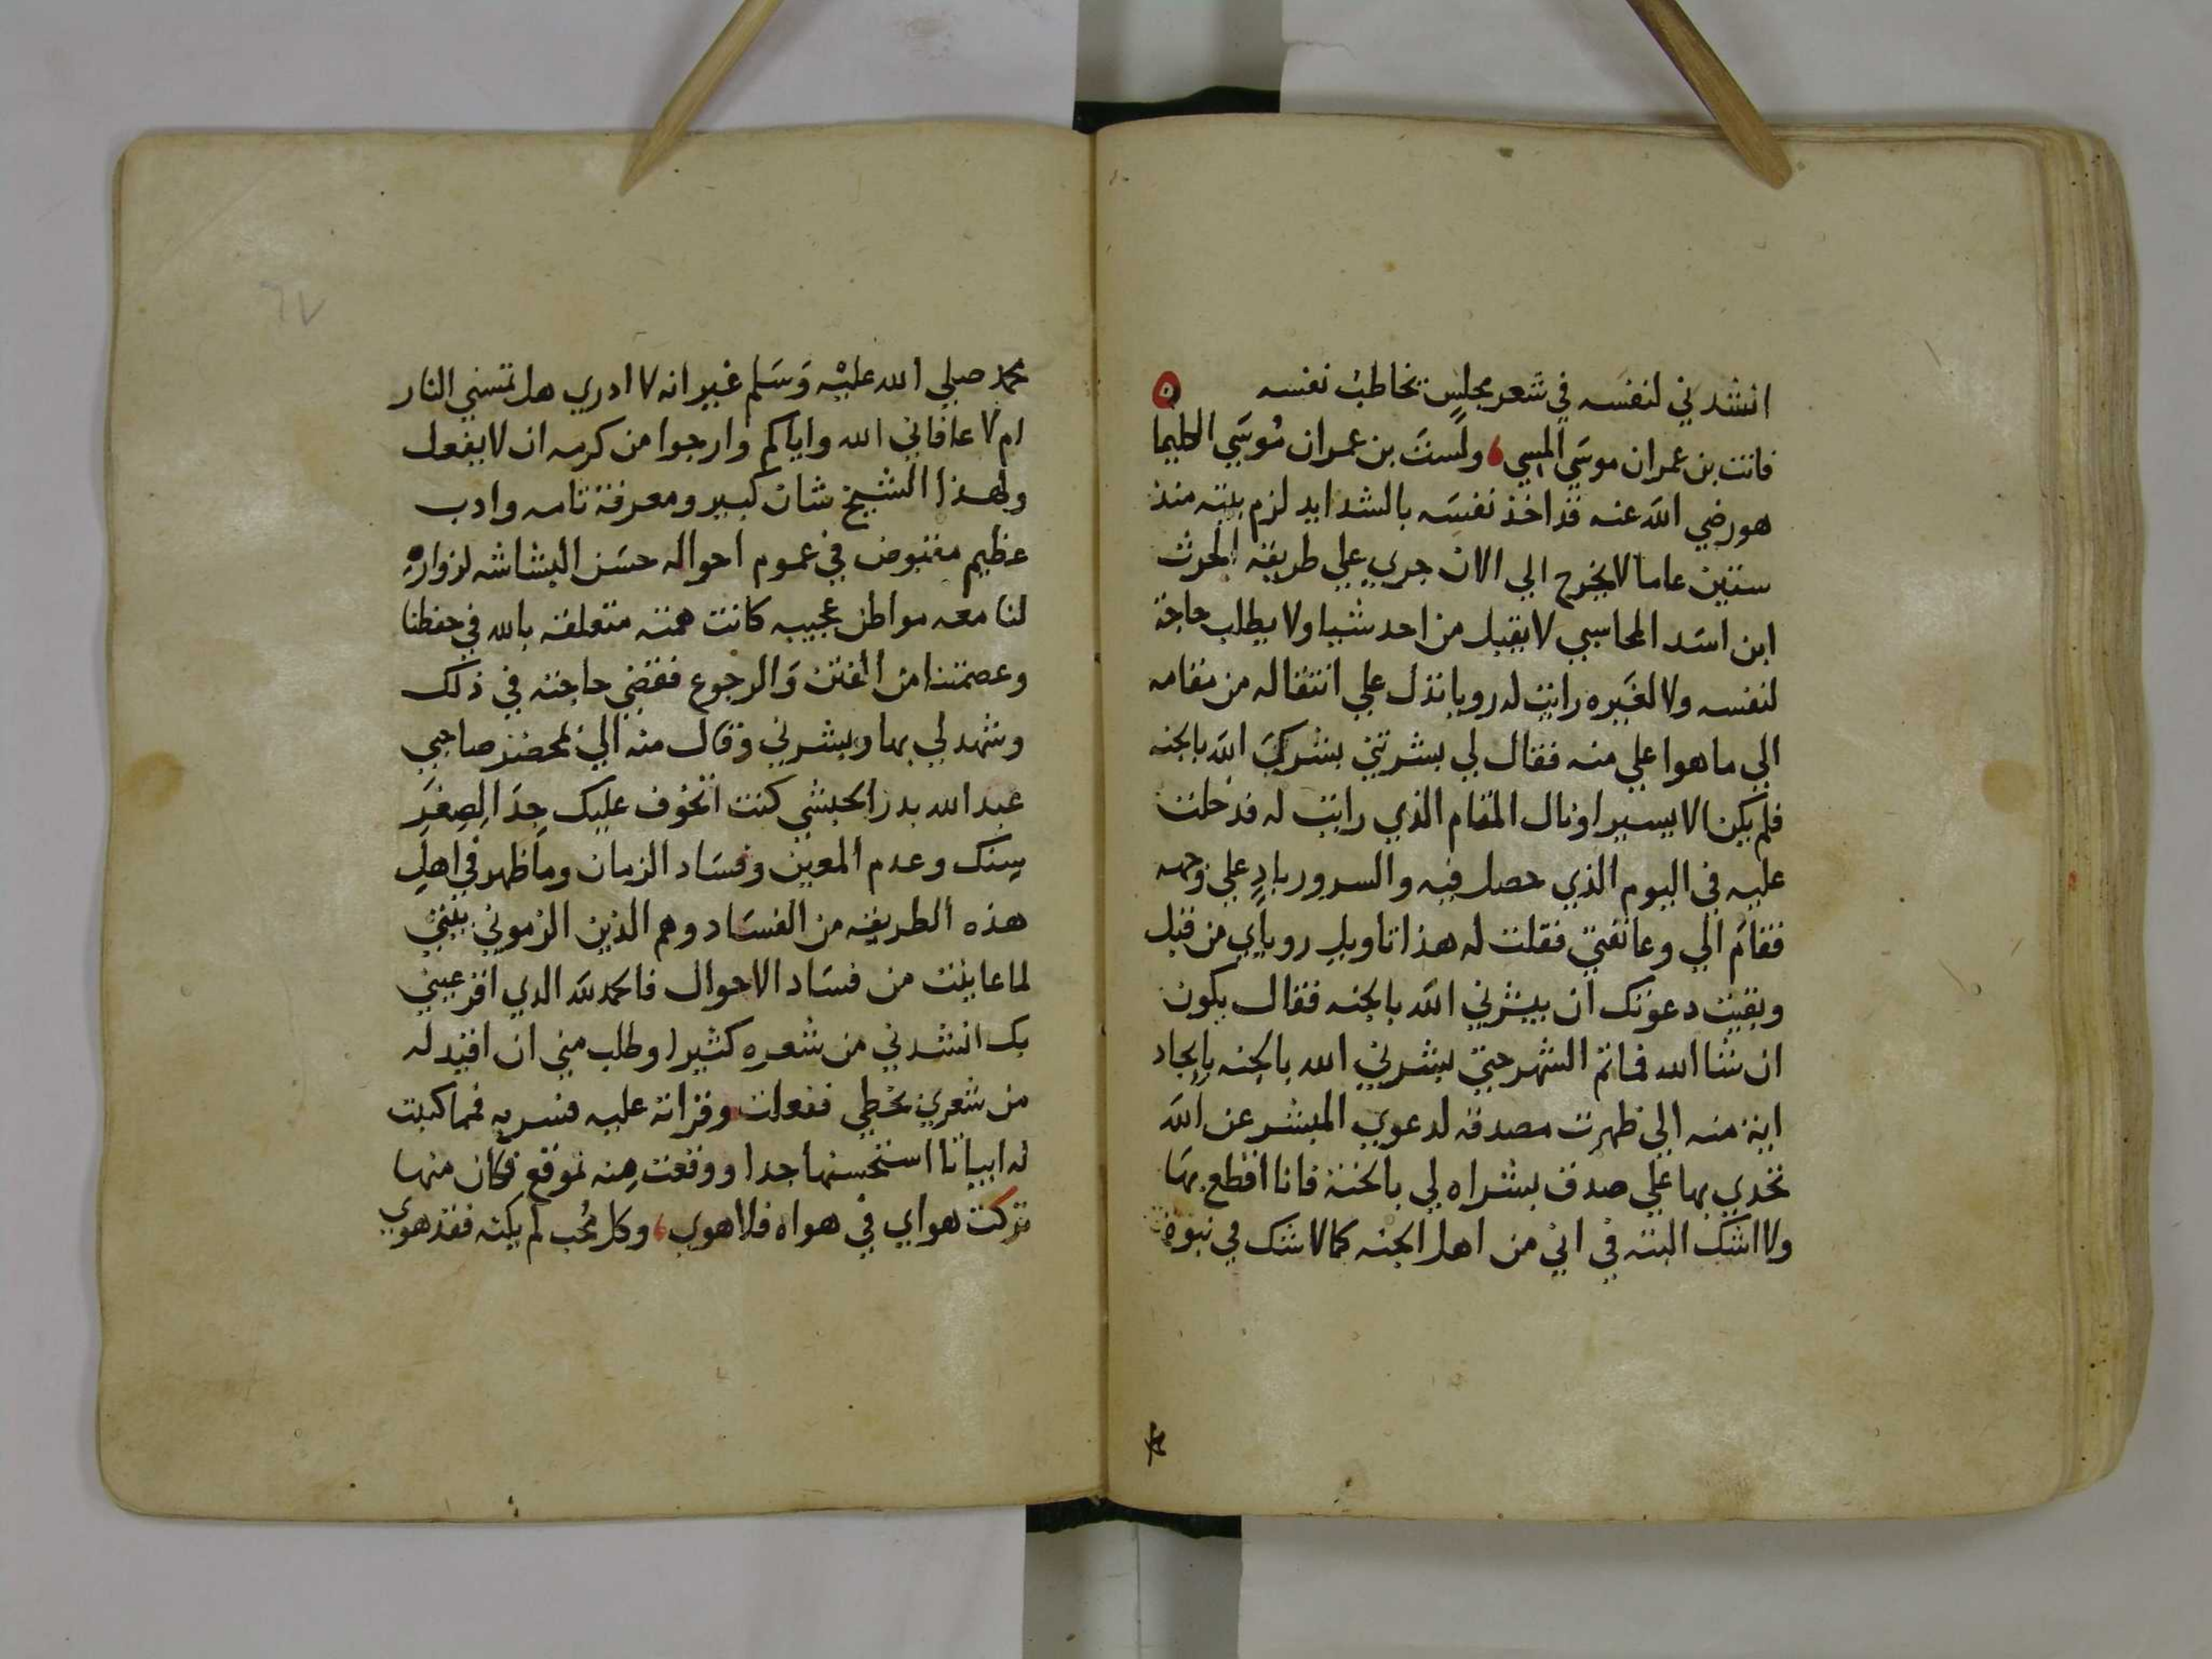 انشدني لنفسه في شعر مجلس تخاطب نفسه
فانت بن عمران موسي المسي ولست بن عمران موسي الكليما
هو رضي الله عنه قد اخذ نفسه بالشدايد لزم بيته منذ
ستين عاما لا يخرج الي الان جري علي طريقة الحرث
ابن اسد المحاسبي لا يقبل من احد شيا ولا يطلب حاجة
لنفسه ولا لغيره رايت له رويا تدل علي انتقاله من مقامه
الي ما هو اعلي منه فقال لي بشرتني بشرك الله بالجنه
فلم يكن الا يسيرا ونال المقام الذي رايت له فدخلت
عليه في اليوم الذي حصل فيه والسرور باد علي وجهه
فقام الي وعانقني فقلت له هذا تاويل روياي من قبل
وبقيت دعوتك ان يبشرني الله بالجنه فقال يكون
ان شا الله فما تم الشهر حتي بشرني الله بالجنه بايجاد
اية منه الي ظهرت مصدقة لدعوي المبشر عن الله
تحدي بها علي صدق بشراه لي بالجنة فانا اقطع بها
ولا اشك البته في اني من اهل الجنه كما لا اشك في نبوة
محمد صلي الله عليه وسلم غير انه لا ادري هل تمسني النار
ام لا عافاني الله واياكم وارجوا من كرمه ان لا يفعل
ولهذا الشيخ شان كبير ومعرفة تامه وادب
عظيم مقبوض في عموم احواله حسن البشاشه لزواره
لنا معه مواطن عجيبه كانت همته متعلقه بالله في حفظنا
وعصمتنا من الفتن والرجوع فقضي حاجته في ذلك
وشهد لي بها وبشرني وقال منه الي بمحضر صاحبي
عبد الله بدر الحبشي كنت اتخوف عليك جدا لصغر
سنك وعدم المعين وفساد الزمان وما ظهر في اهل
هذه الطريقه من الفساد وهم الذين الزموني بيتي
لما عاينت من فساد الاحوال فالحمد لله الدي اقر عيني
بك انشدني من شعره كثيرا وطلب مني ان اقيد له
من شعري بخطي ففعلت وقراته عليه فسر به فما كتبت
له ابياتا استحسنها جدا ووقعت منه بموقع فكان منها
تركت هواي في هواه فلا هوي وكل محب لم يكنه فقد هوي